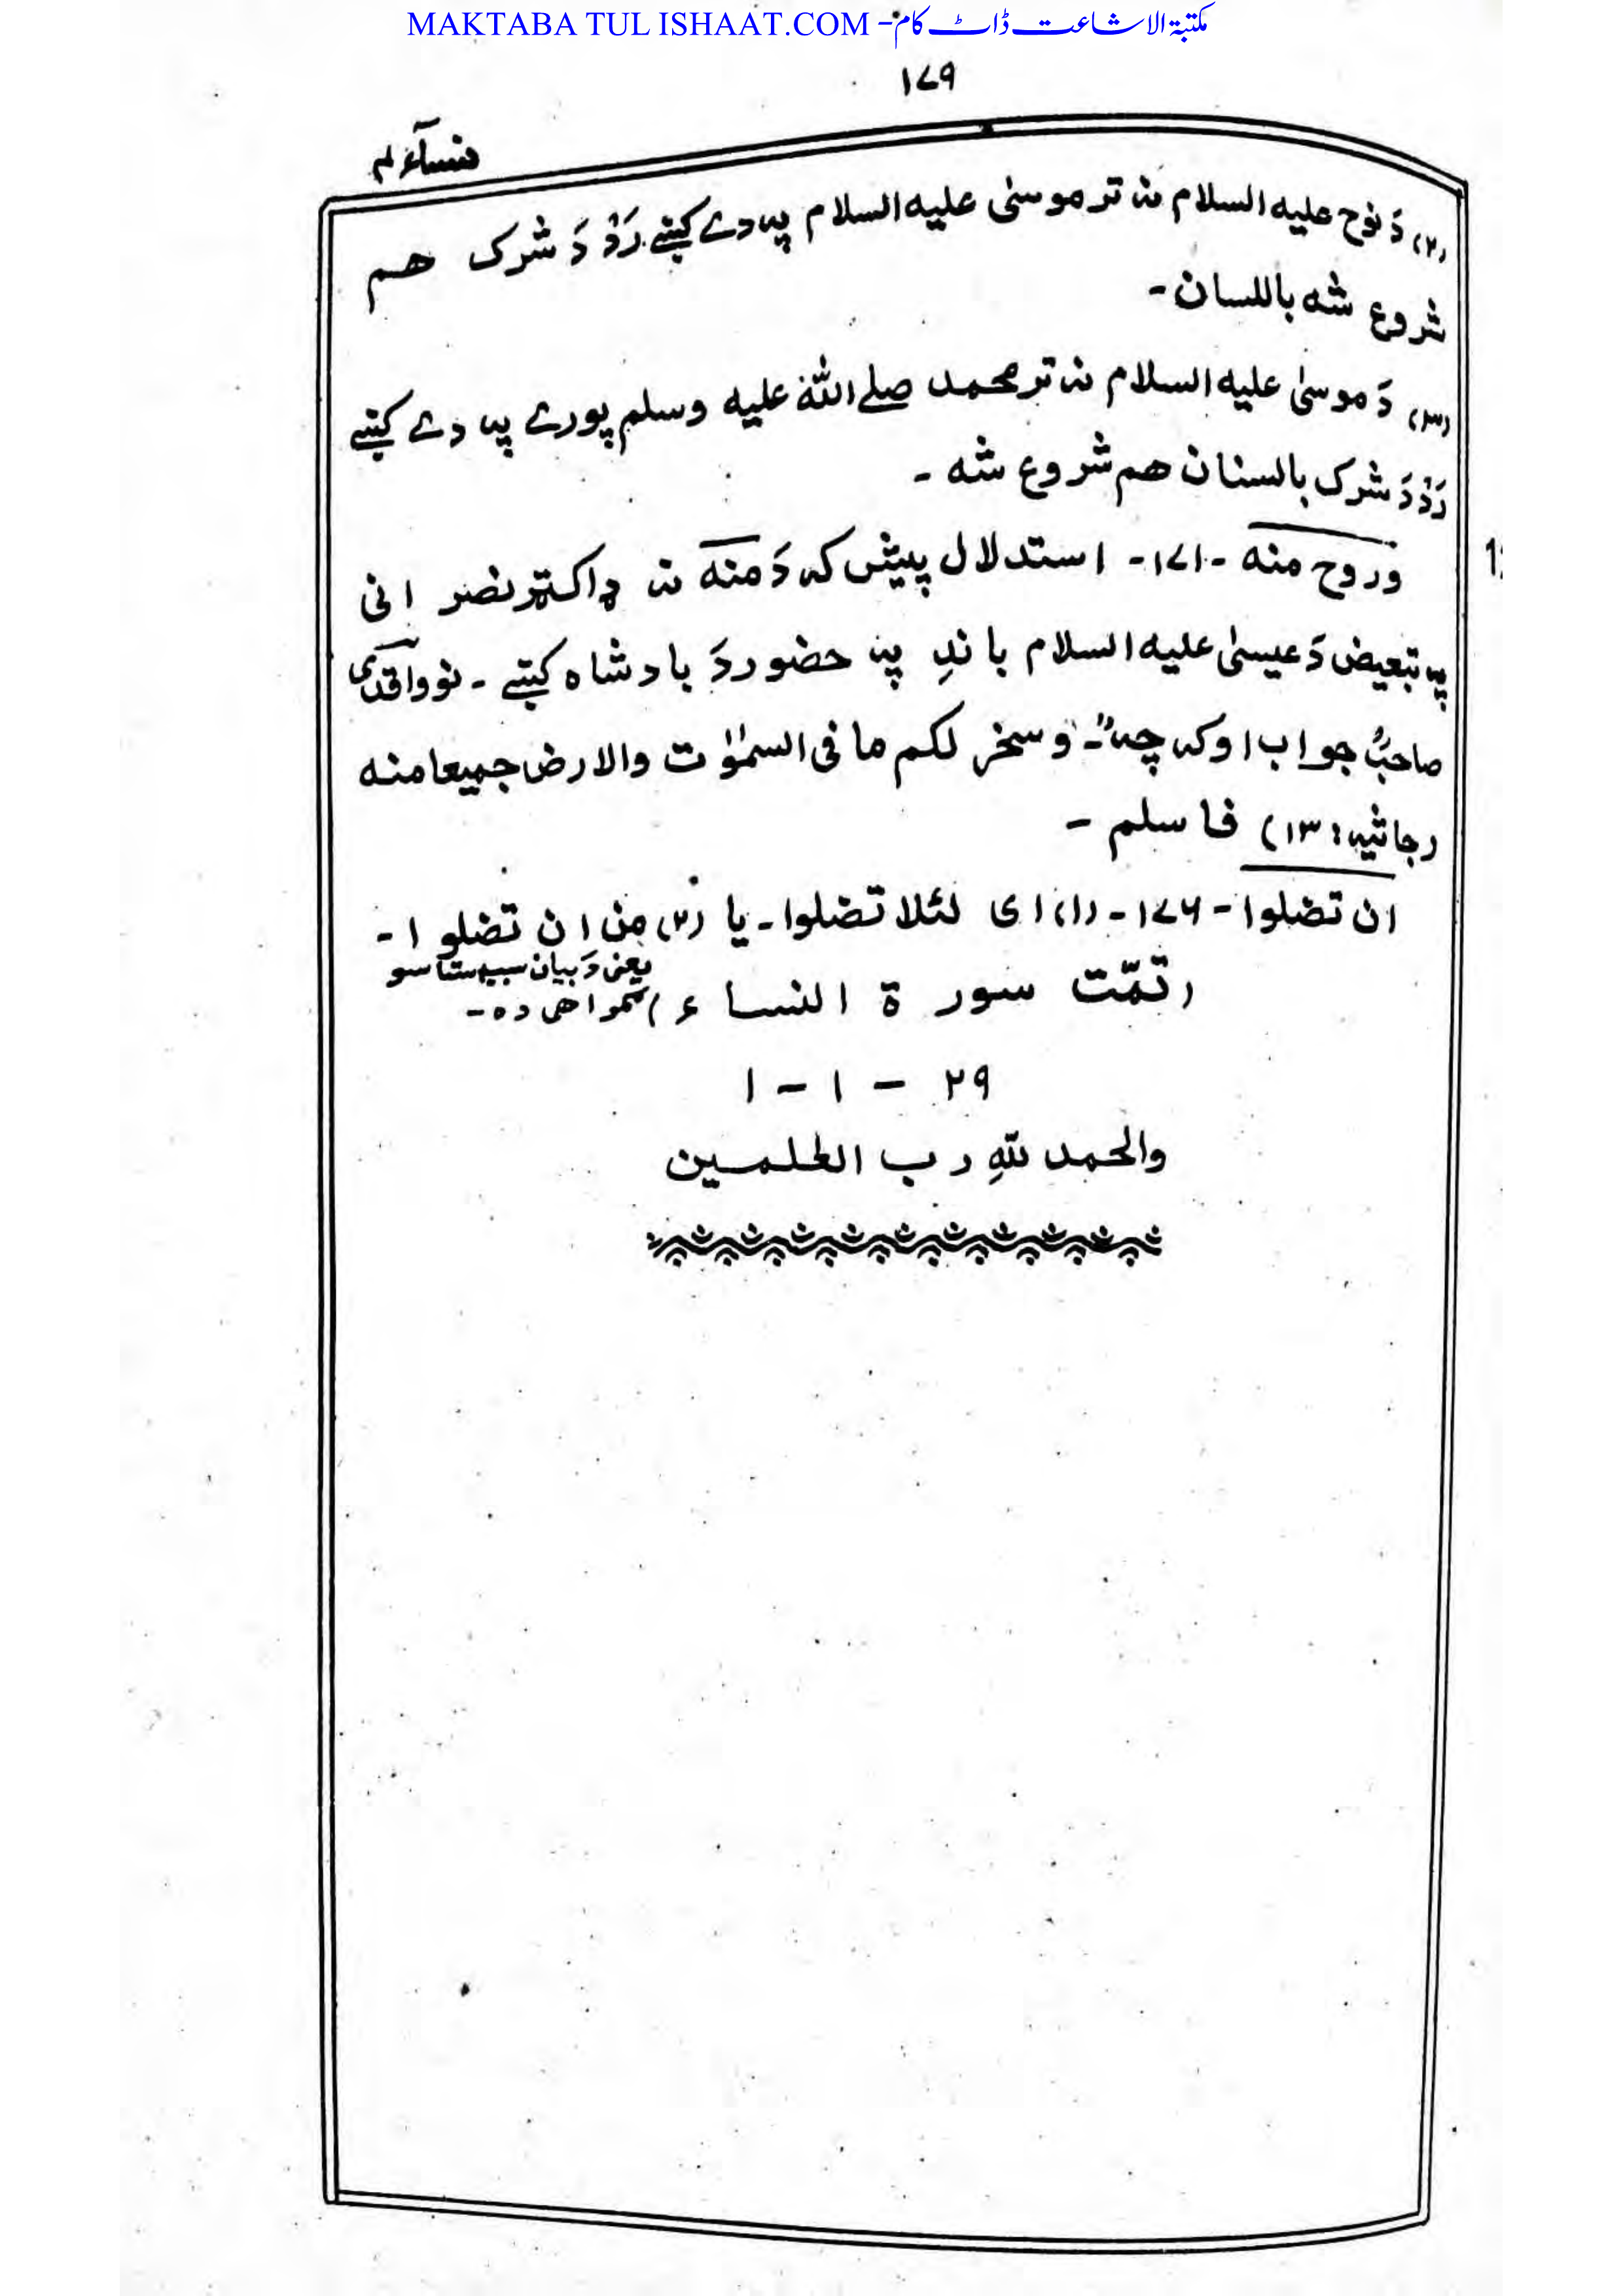 MAKTABA TUL ISHAAT.COM -مکتبۃ الاشاعت ڈاٹ کام
۱۷۹
نسآء ۴
(۲) دَ نوح علیه السلام نه تر موسیٰ علیه السلام پہ دے کښے رَدْ دَ شرک هم
شروع شه باللسان -
(۳) دَ موسیٰ علیه السلام نه تر محمد صلے اللہ علیه وسلم پورے پہ دے کښے
رَدْ دَ شرک بالسنان هم شروع شه -
وروح منه -۱۷۱- استدلال پیش کہ دَ منه نه ډاکټر نصرانی
پہ تبعیض دَ عیسیٰ علیه السلام باندِ پہ حضور دَ بادشاه کښے - نو واقدی
صاحبؒ جواب اوکہ چہ "وسخر لکم ما فی السمٰوٰت والارض جمیعا منه
(جاثیہ: ۱۳) فاسلم -
ان تضلوا - ۱۷۶ - (۱) ای لئلا تضلوا - یا (۲) مِن ان تضلوا -
یعنی دَ بیان سبب ستاسو
(تمّت سورة النساء) ګمراهی ده -
۲۹ - ۱ - ۱
والحمد للهِ رب العٰلمین